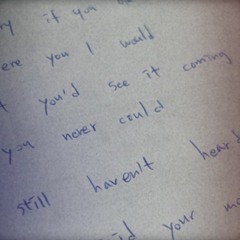 if you
you I would
you'd see it coming
you never could
still haven't
your